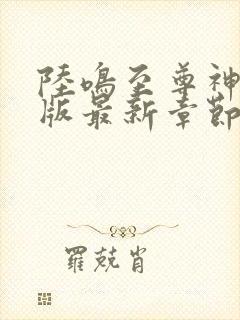 陸鳴至尊神
版最新章節
羅兢肖